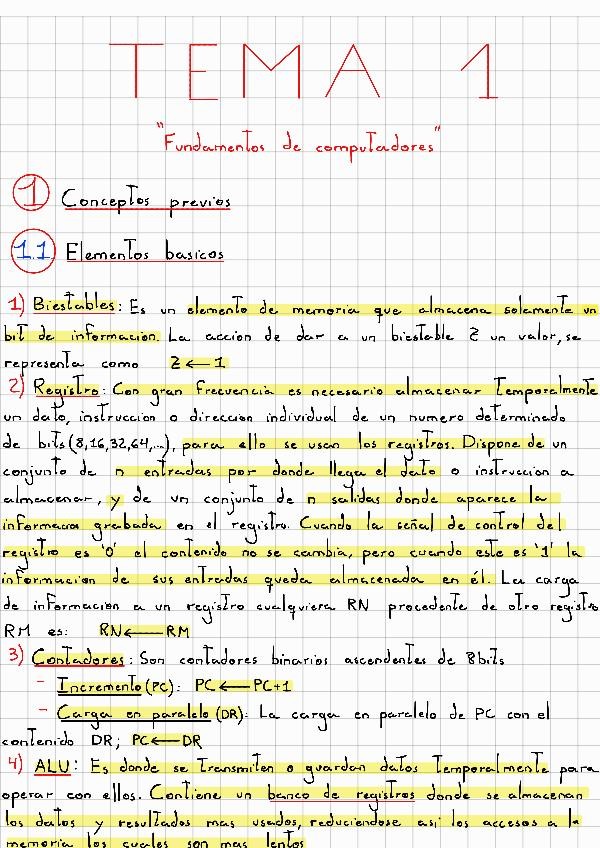 TEMA 1
"Fundamentos de computadores"
1 Conceptos previos
1.1 Elementos basicos
1) Biestables: Es un elemento de memoria que almacena solamente un
bit de informacion. La accion de dar a un biestable Z un valor, se
representa como Z ← 1
2) Registro: Con gran frecuencia es necesario almacenar Temporalmente
un dato, instruccion o direccion individual de un numero determinado
de bits (8,16,32,64,...), para ello se usan los registros. Dispone de un
conjunto de n entradas por donde llega el dato o instruccion a
almacenar, y de un conjunto de n salidas donde aparece la
informacion grabada en el registro. Cuando la señal de control del
registro es '0' el contenido no se cambia, pero cuando este es '1' la
informacion de sus entradas queda almacenada en él. La carga
de informacion a un registro cualquiera RN procedente de otro registro
RM es: RN ← RM
3) Contadores: Son contadores binarios ascendentes de 8bits
- Incremento (PC): PC ← PC+1
- Carga en paralelo (DR): La carga en paralelo de PC con el
contenido DR; PC ← DR
4) ALU: Es donde se Transmiten o guardan datos Temporalmente para
operar con ellos. Contiene un banco de registros donde se almacenan
los datos y resultados mas usados, reduciendose asi los accesos a la
memoria los cuales son mas lentos